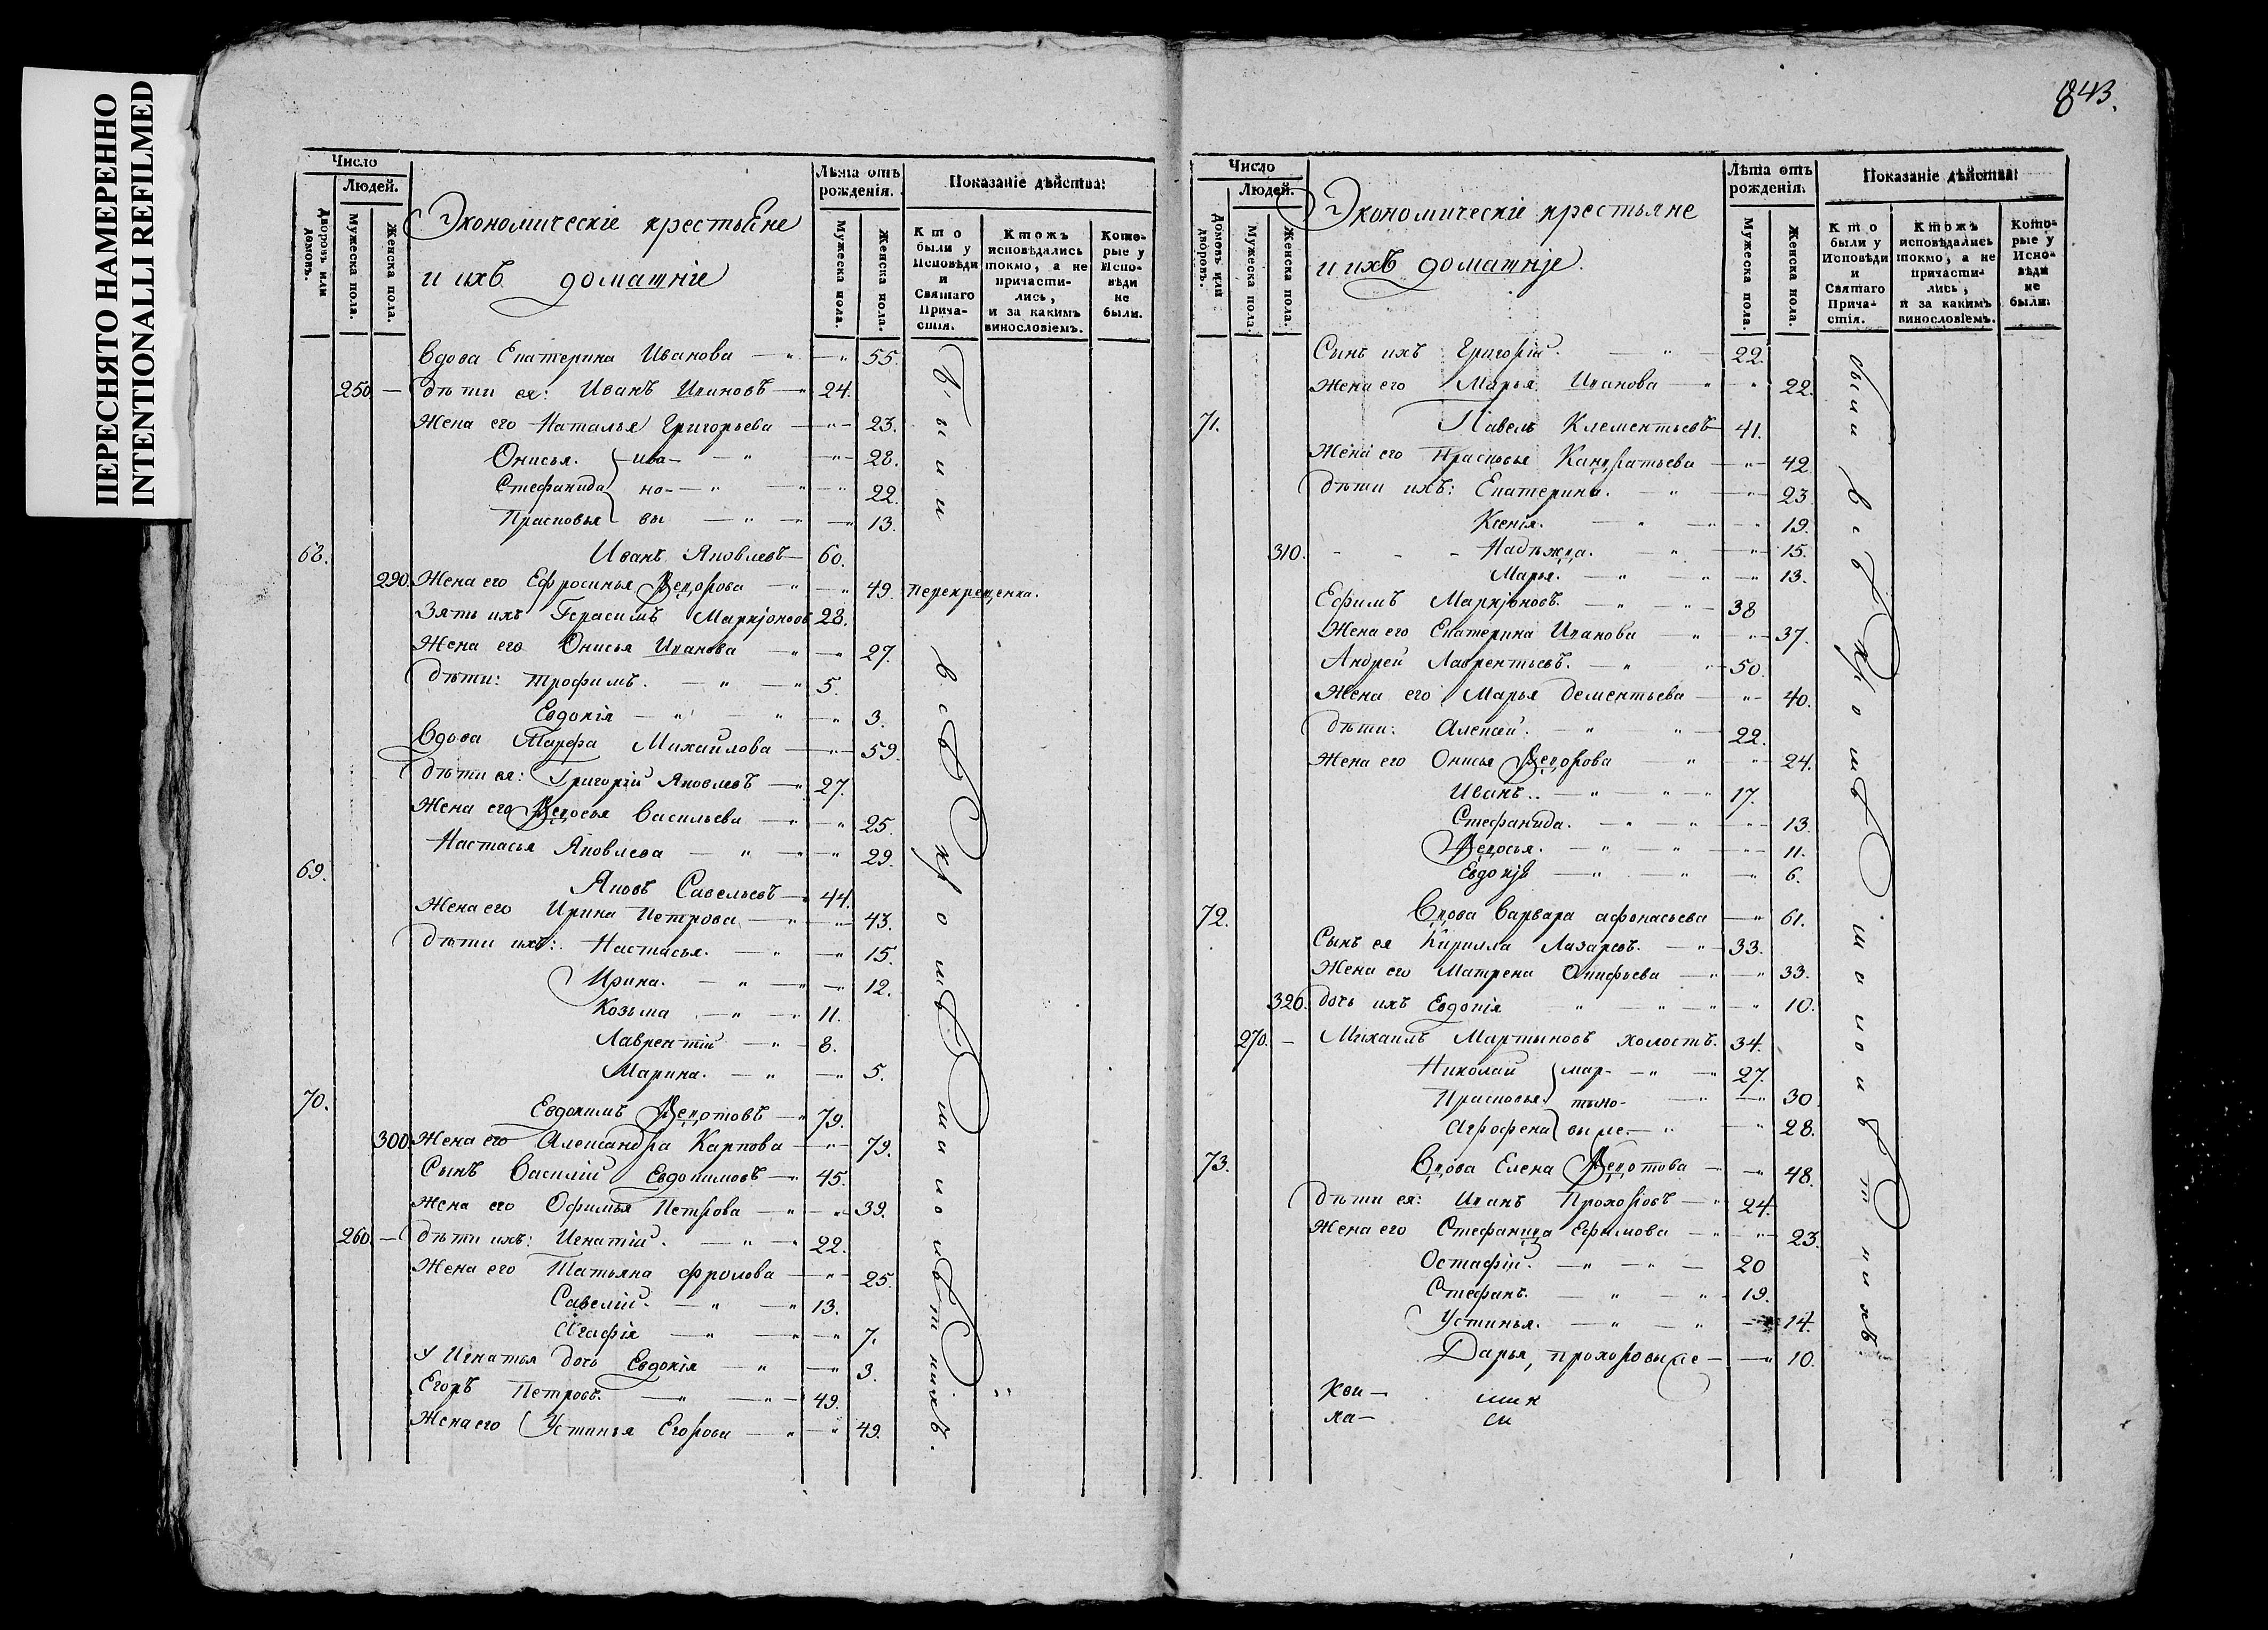 ПЕРЕСНЯТО НАМЕРЕННО
INTENTIONALLI REFILMED
Число
Людей.
Дворовъ или домовъ.
Мужеска пола.
Женска пола.
Экономическіе крестьяне
и ихъ домашніе
Лѣта отъ рожденія.
Мужеска пола.
Женска пола.
Показаніе дѣйства:
Кто были у Исповѣди и Святаго Прича-стія.
Ктожъ исповѣдались токмо, а не причасти-лись, и за какимъ винословіемъ.
Кото-рые у Испо-вѣди не были.
Вдова Екатерина Иванова — 55.
250 — дѣти ея: Иванъ Ивановъ — 24.
Жена его Наталья Григорьева — 23.
Онисья. ива- — 28.
Стефанида но- — 22.
Прасковья вы — 13.
68. Иванъ Яковлевъ — 60.
290. Жена его Ефросинья Ѳедорова — 49. перекрещенка.
Зять ихъ Герасимъ Маркіоновъ 28.
Жена его Онисья Иванова — 27.
дѣти: Трофимъ. — 5.
Евдокія — 3.
Вдова Марфа Михайлова — 59.
дѣти ея: Григорій Яковлевъ — 27.
Жена его Ѳедосья Васильева — 25.
Настасья Яковлева — 29.
69. Яковъ Савельевъ — 44.
Жена его Ирина Петрова — 43.
дѣти ихъ: Настасья. — 15.
Ирина. — 12.
Козьма — 11.
Лаврентій — 8.
Марина. — 5.
70. Евдокимъ Ѳедотовъ — 79.
300. Жена его Александра Карпова — 79.
Сынъ Василій Евдокимовъ — 45.
Жена его Офимья Петрова — 39.
260. — дѣти ихъ: Игнатій. — 22.
Жена его Татьяна Фролова — 25.
Савелій. — 13.
Агафія — 7.
У Игнатья дочь Евдокія — 3.
Егоръ Петровъ. — 49.
Жена его Устинья Егорова — 49.
были всѣ кромѣ
843.
Число
Людей.
Домовъ или дворовъ.
Мужеска пола.
Женска пола.
Экономическіе крестьяне
и ихъ домашніе.
Лѣта отъ рожденія.
Мужеска пола.
Женска пола.
Показаніе дѣйства:
Кто были у Исповѣди и Святаго Прича-стія.
Ктожъ исповѣдались токмо, а не причасти-лись, и за какимъ винословіемъ.
Кото-рые у Испо-вѣди не были.
Сынъ ихъ Григорій. — 22.
Жена его Марья Иванова — 22.
71. Павелъ Клементьевъ 41.
Жена его Прасковья Кандратьева — 42
дѣти ихъ: Екатерина. — 23
Ксенія. — 19.
310. - - - Надѣжда. — 15.
Марья. — 13.
Ефимъ Маркіоновъ. — 38
Жена его Екатерина Иванова — 37.
Андрей Лаврентьевъ. — 50.
Жена его Марья Дементьева — 40.
дѣти: Алексѣй. — 22.
Жена его Онисья Ѳедорова — 24.
Иванъ. — 17.
Стефанида. — 13.
Ѳедосья. — 11.
Евдокія — 6.
72. Вдова Варвара Афонасьева — 61.
Сынъ ея Кирилла Лазаревъ. — 33.
Жена его Матрена Онифьева — 33.
320. дочь ихъ Евдокія — 10.
270. — Михаилъ Мартыновъ холостъ. 34.
Николай мар- — 27.
Прасковья. тыно- — 30.
Агрофена вы ле. — 28.
73. Вдова Елена Ѳедотова — 48.
дѣти ея: Иванъ Прохоровъ — 24.
Жена его Стефанида Ефимова — 23.
Остафій. — 20
Стефанъ. — 19.
Устинья. — 14.
Дарья, прохоровы — 10.
были всѣ кромѣ